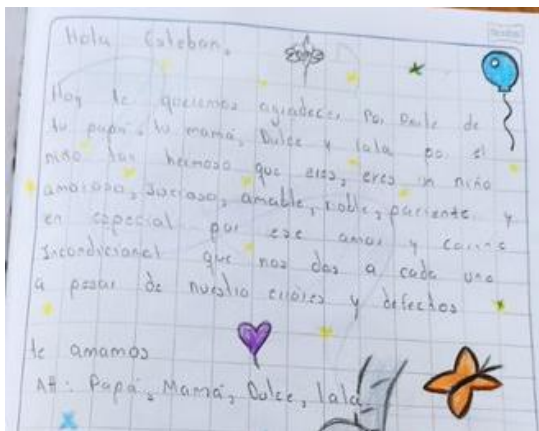 Hola Esteban,
Hoy te queremos agradecer por parte de
tu papá, tu mamá, Dulce y lala por el
niño tan hermoso que eres, eres un niño
amoroso, juicioso, amable, noble, paciente y
en especial por ese amor y cariño
Incondicional que nos das a cada uno
a pesar de nuestro errores y defectos
te amamos
Att: Papá, Mamá, Dulce, lala.